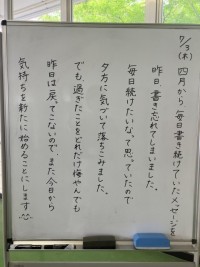 7/3(木)
四月から毎日書き続けていたメッセージを
昨日、書き忘れてしまいました。
毎日続けたいなって思っていたので
夕方に気づいて落ちこみました。
でも過ぎたことをどれだけ悔やんでも
昨日は戻ってこないので、また今日から
気持ちを新たに始めることにします